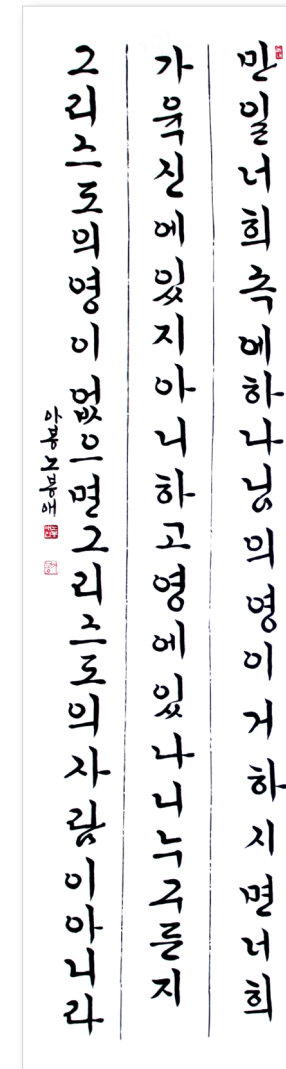 만일너희속에하나님의영이거하시면너희
가육신에있지아니하고영에있나니누구든지
그리스도의영이없으면그리스도의사람이아니라
아봉노봉애